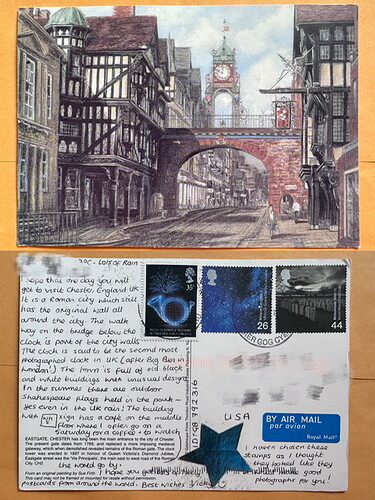 20C - Lots of Rain
I hope that one day you will
get to visit Chester, England UK
It is a Roman city which still
has the original wall all
around the city. The walk
way on the bridge below the
clock is part of the city walls
The clock is said to be the second most
photographed clock in UK (after Big Ben in
London) The town is full of old black
and white buildings with unusual designs
In the summer these are outdoor
Shakespeare plays held in the park -
yes even in the UK rain! The building
with sign has a café on the middle
floor where I often go on a
Saturday for a coffee + to watch
EASTGATE, CHESTER has long been the main entrance to the city of Chester.
The present gate dates from 1769, and replaced a more imposing medieval
gateway, which when demolished revealed remains of the Roman gate. The clock
tower was erected in 1897 in honour of Queen Victoria's Diamond Jubilee.
Eastgate street was the 'Via Principalis', the main east to west road of the Roman
City.
the world go by.
From an original painting by Sue Firth
This card may not be framed or mounted for resale without permission.
I hope you
postcards from around the world. Best Wishes
35
26
44
USA
BY AIR MAIL
par avion
Royal Mail
I have chosen these
stamps as I thought
they looked like they
good
photographs for you!